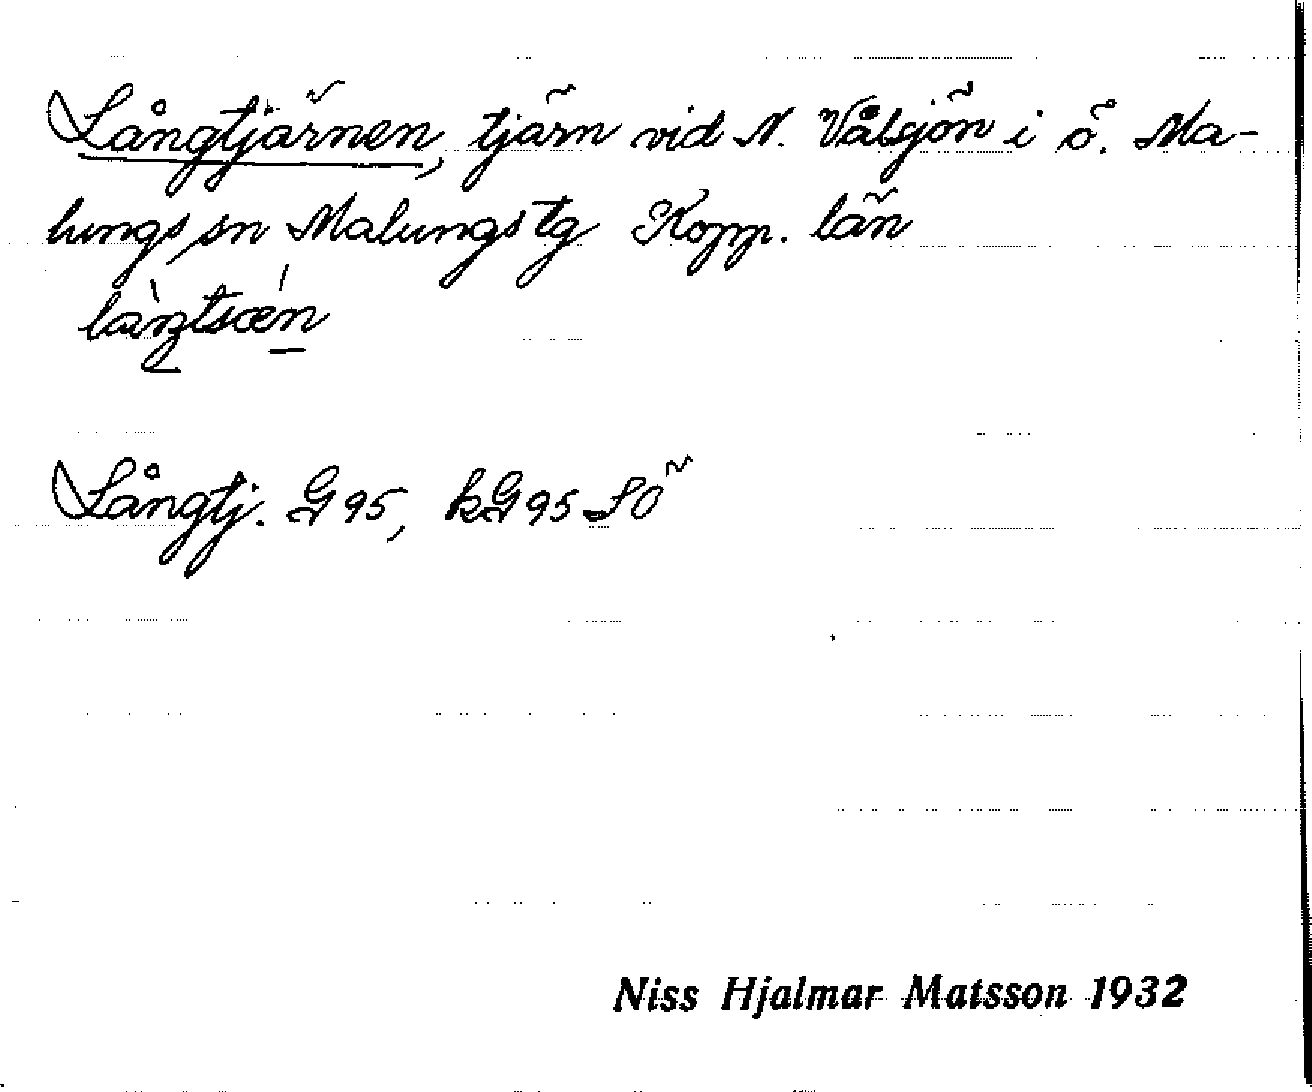 Långtjärnen, tjärn vid N. Vålsjön i ö. Ma-
lungs sn Malungs tg Kopp. län
Långtj. G95, kG95 SÖ
Niss Hjalmar Matsson 1932